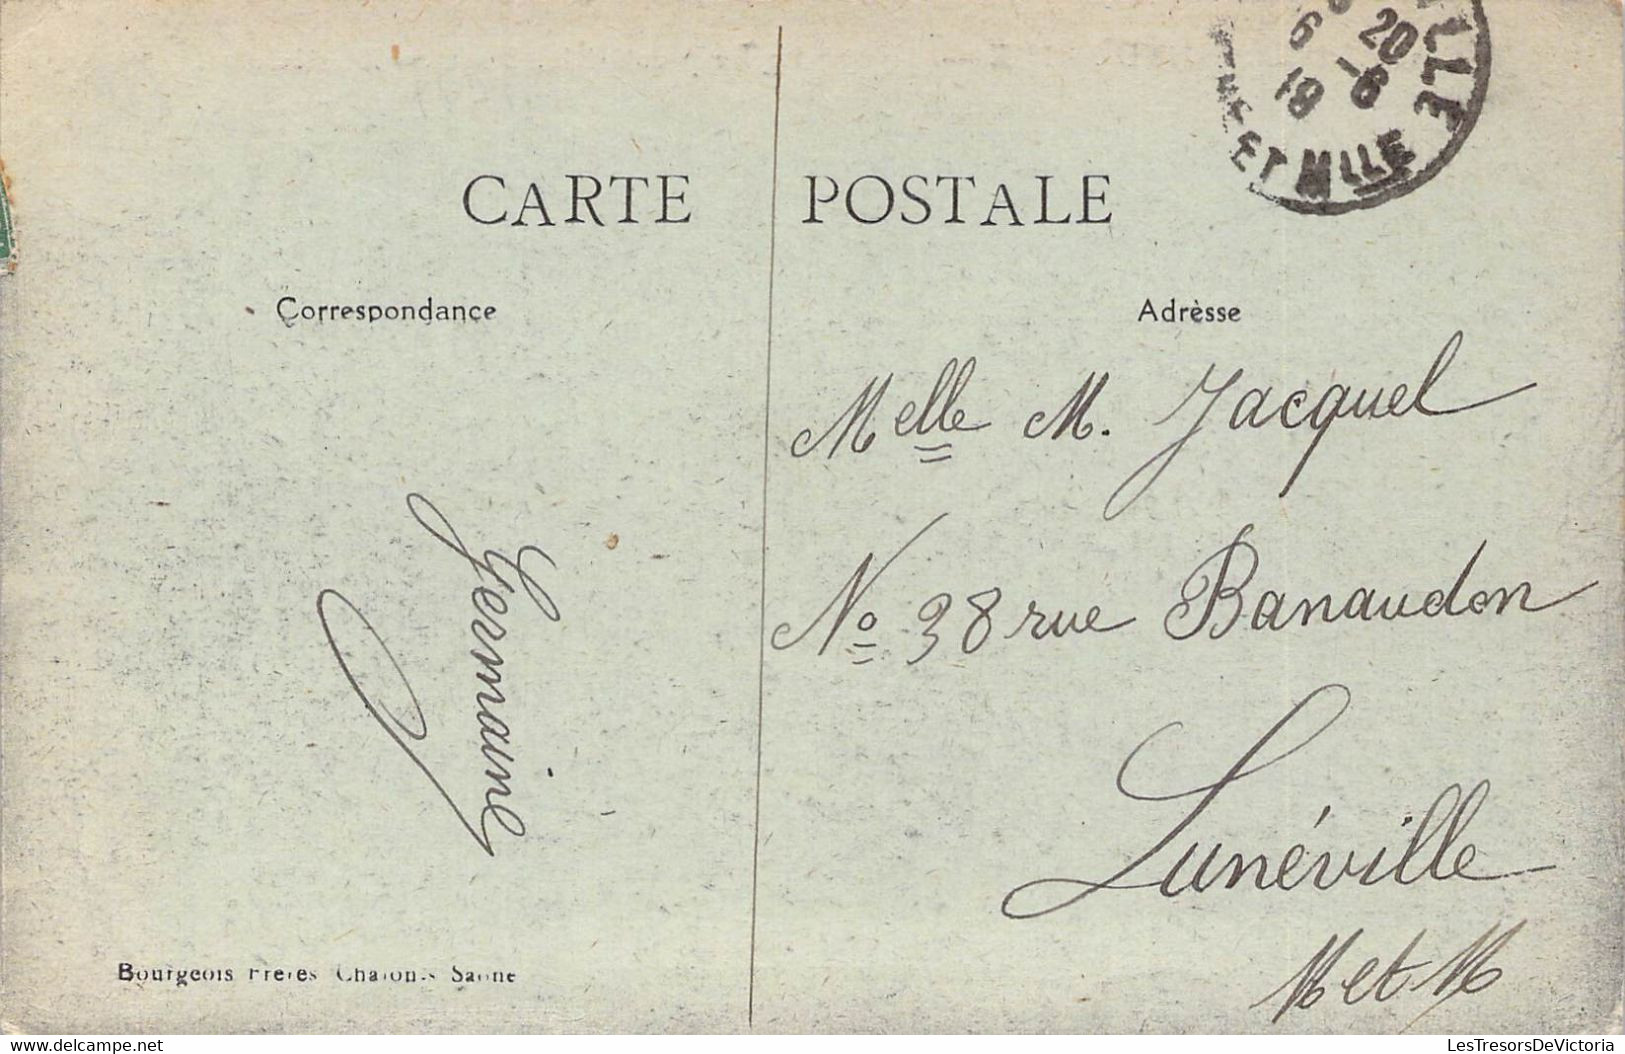 CARTE POSTALE
Correspondance
Adrèsse
Melle M. Jacquel
No 38 rue Banaudon
Lunéville
M et M
Germaine
Bourgeois Frères Chalon-s Saône
LLE
6 20
19 -6
ET MLLE
https://www.delcampe.net
LesTresorsDeVictoria